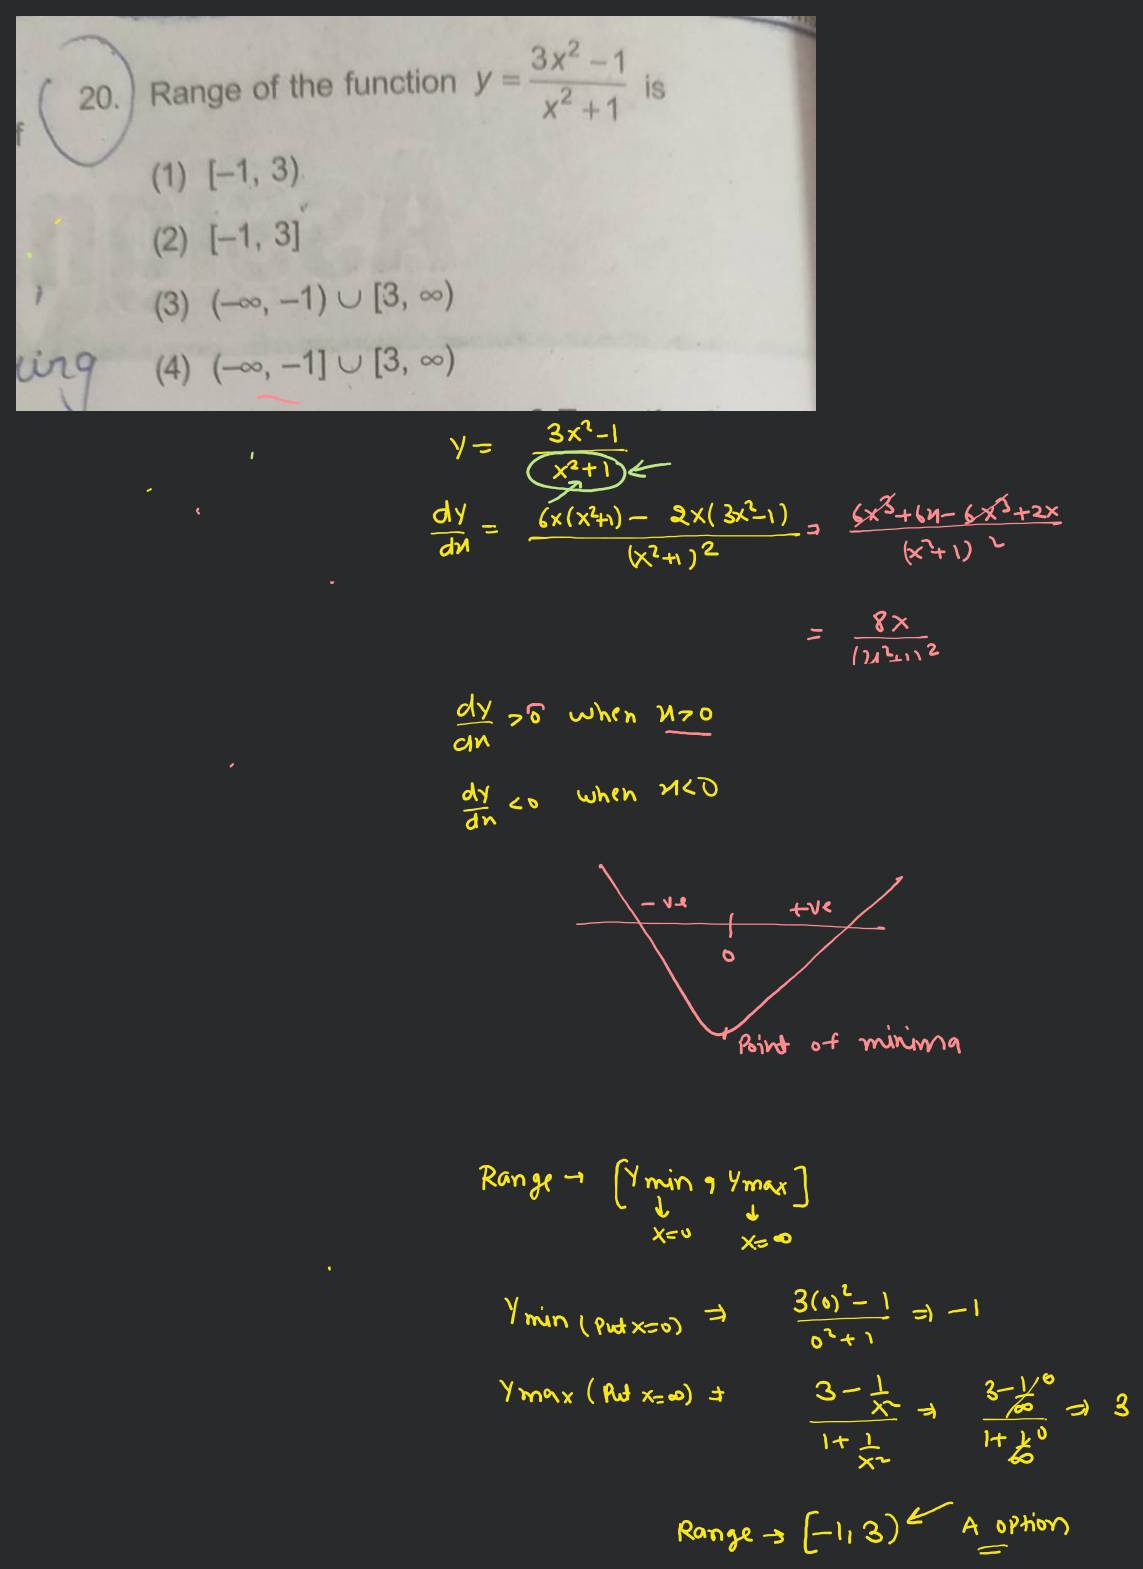 20. Range of the function y = (3x² − 1)/(x² + 1) is
f
(1) [−1, 3)
(2) [−1, 3]
(3) (−∞, −1) ∪ [3, ∞)
(4) (−∞, −1] ∪ [3, ∞)
y = (3x²−1)/(x²+1) ←
dy/dx = (6x(x²+1) − 2x(3x²−1))/(x²+1)² ⇒ (6x³+6x−6x³+2x)/(x²+1)²
= 8x/(x²+1)²
dy/dx >0 when x>0
dy/dx <0 when x<0
−ve +ve
0
Point of minima
Range → [Ymin, Ymax]
↓ ↓
x=0 x=∞
Ymin (Put x=0) ⇒ (3(0)²−1)/(0²+1) ⇒ −1
Ymax (Put x=∞) ⇒ (3−1/x²)/(1+1/x²) ⇒ (3−1/∞ 0)/(1+1/∞ 0) ⇒ 3
Range → [−1, 3) ← A option